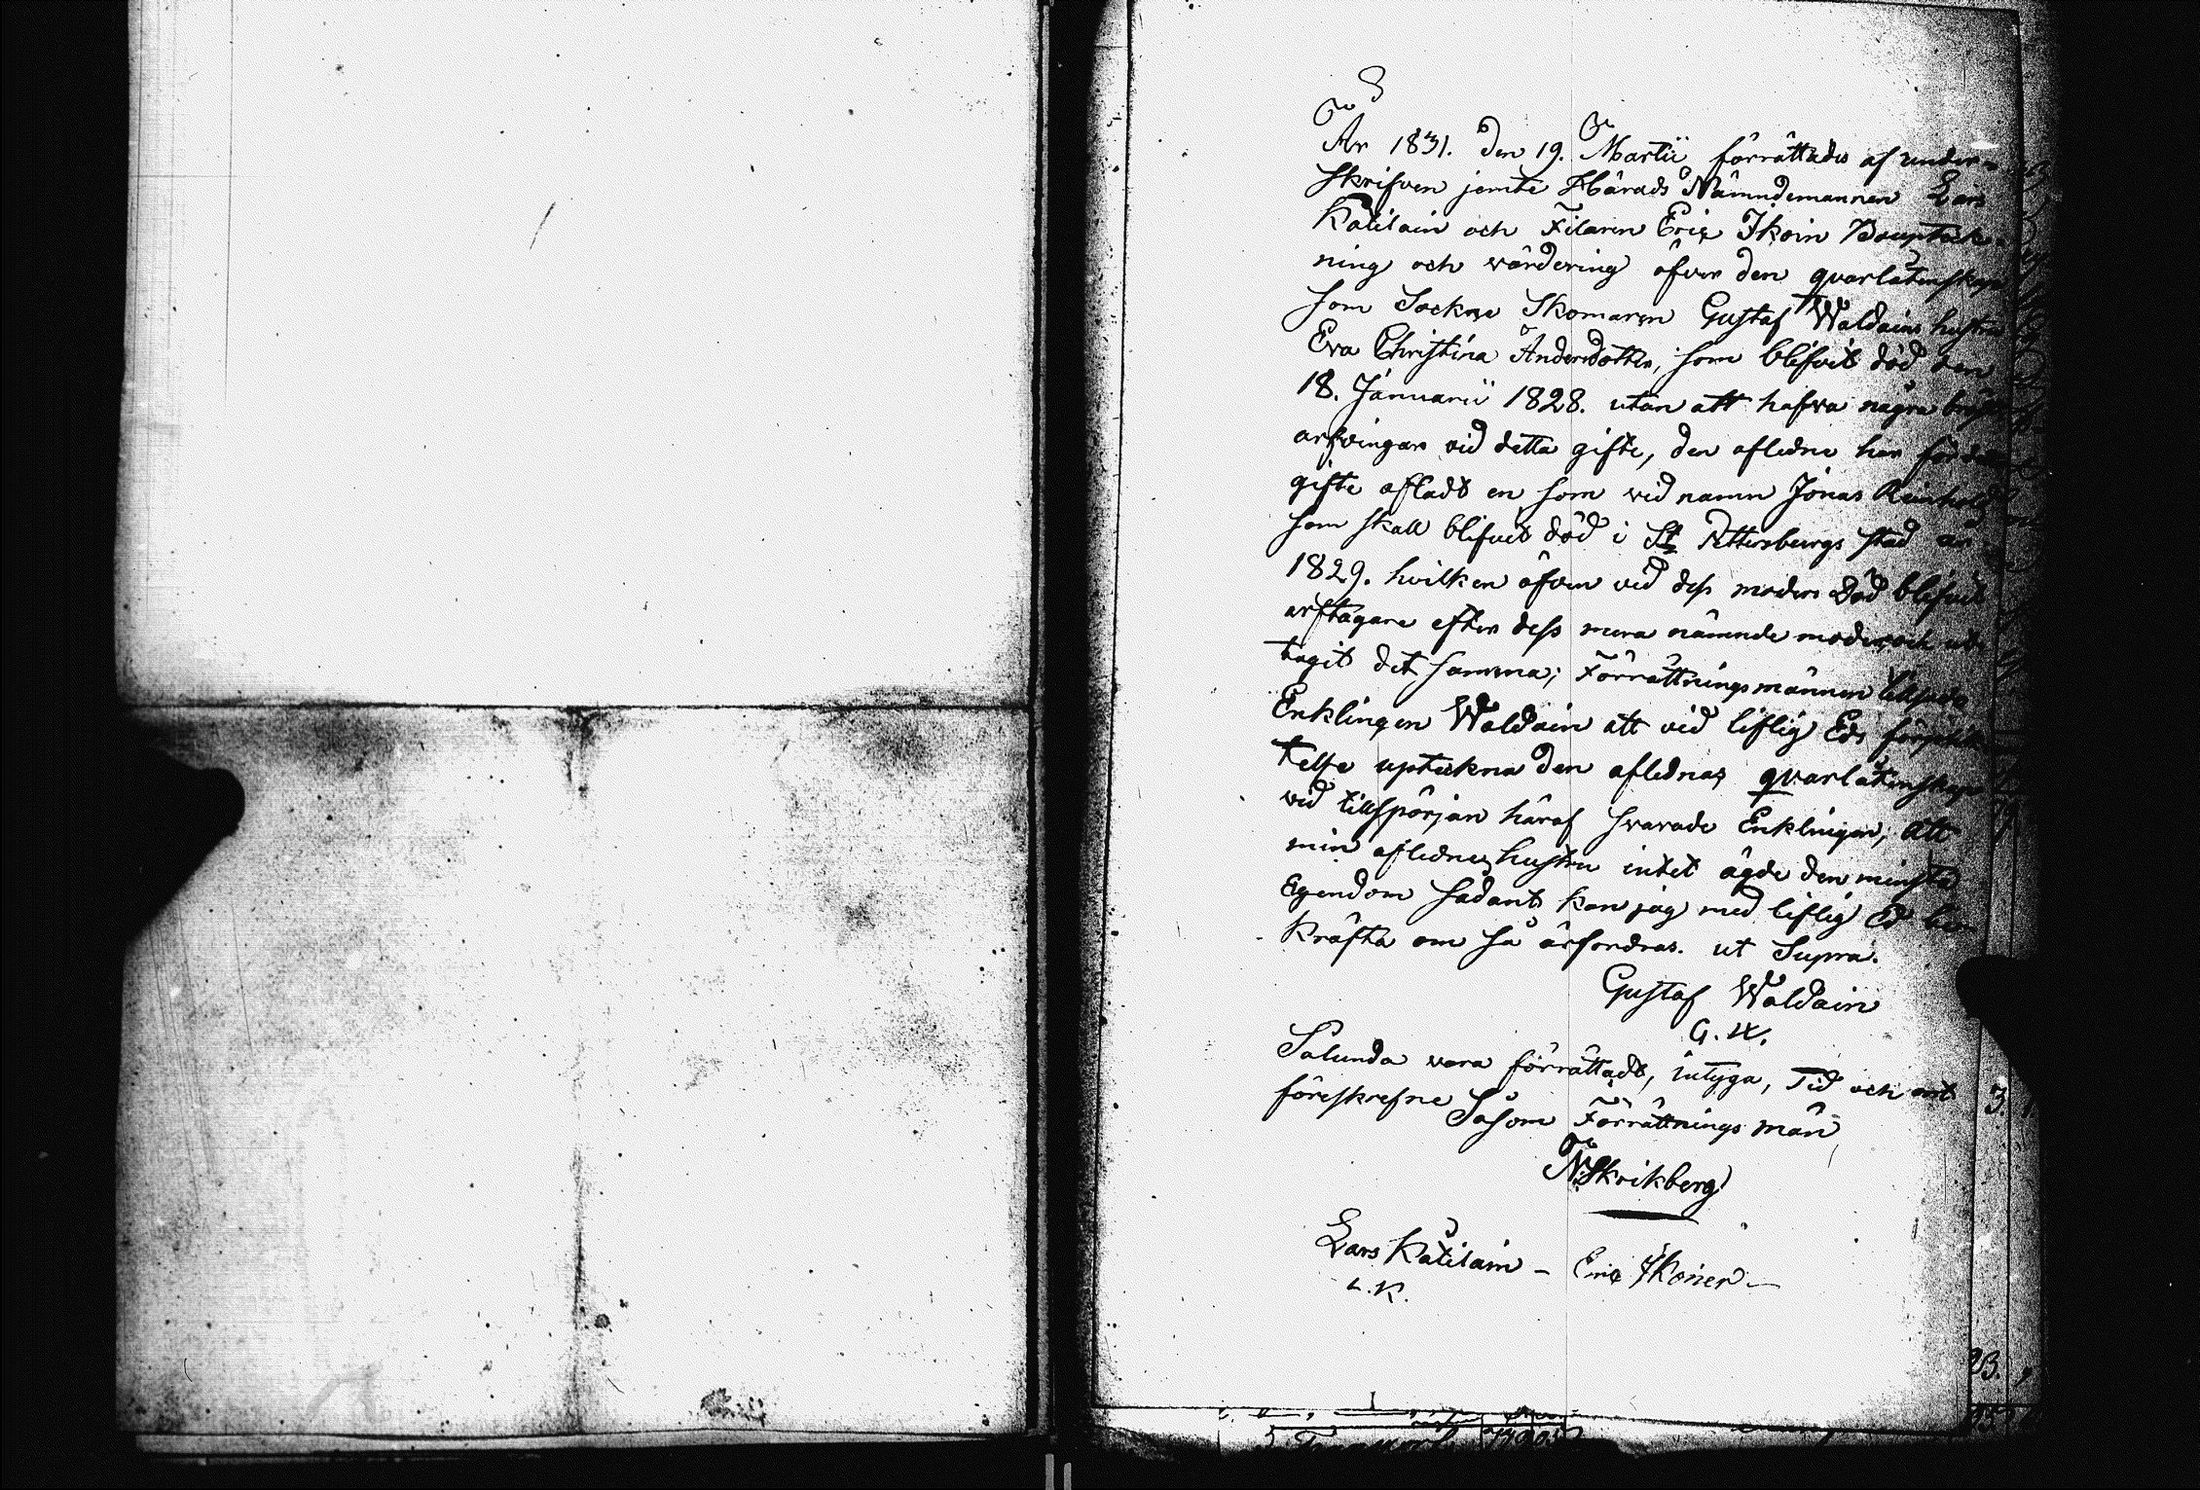 År 1831. den 19. Martii förrättades af under-
skrifven jemte Härads Nämndemannen Lars
Katilain och Filaren Eric Ikoin Bouptek-
ning och värdering öfver den qvarlåtenskap
som Sockne Skomaren Gustaf Waldains hustru
Eva Christina Andersdotter, som blifvit död den
18. Januarii 1828. utan att hafva några bröst
arfvingar vid detta gifte, den aflidne har förra
gifte aflads en som vid namn Jonas Reinhold
som skall blifvit död i St Pettersburgs stad år
1829. hvilken äfven vid dess moders död blifvit
arftagare efter dess mera nämnde moder och ut-
tagit det samma; Förrättningsmännen tillsade
Enklingen Waldain att vid liflig Eds förplik-
telse upteckna den aflednas qvarlåtenskap
vid tillspörjan häraf svarade Enklingen, att
min aflidnes hustru intet ägde den minsta
Egendom sådant kan jag med liflig Ed be-
kräfta om så ärfordras. ut Supra.
Gustaf Waldain
G. W.
Sålunda vara förrättadt, intyga, Tid och ort
föreskrefne Såsom Förrättnings män
N. Skrikberg
Lars Katilain – Eric Ikonen –
L. K.
3.